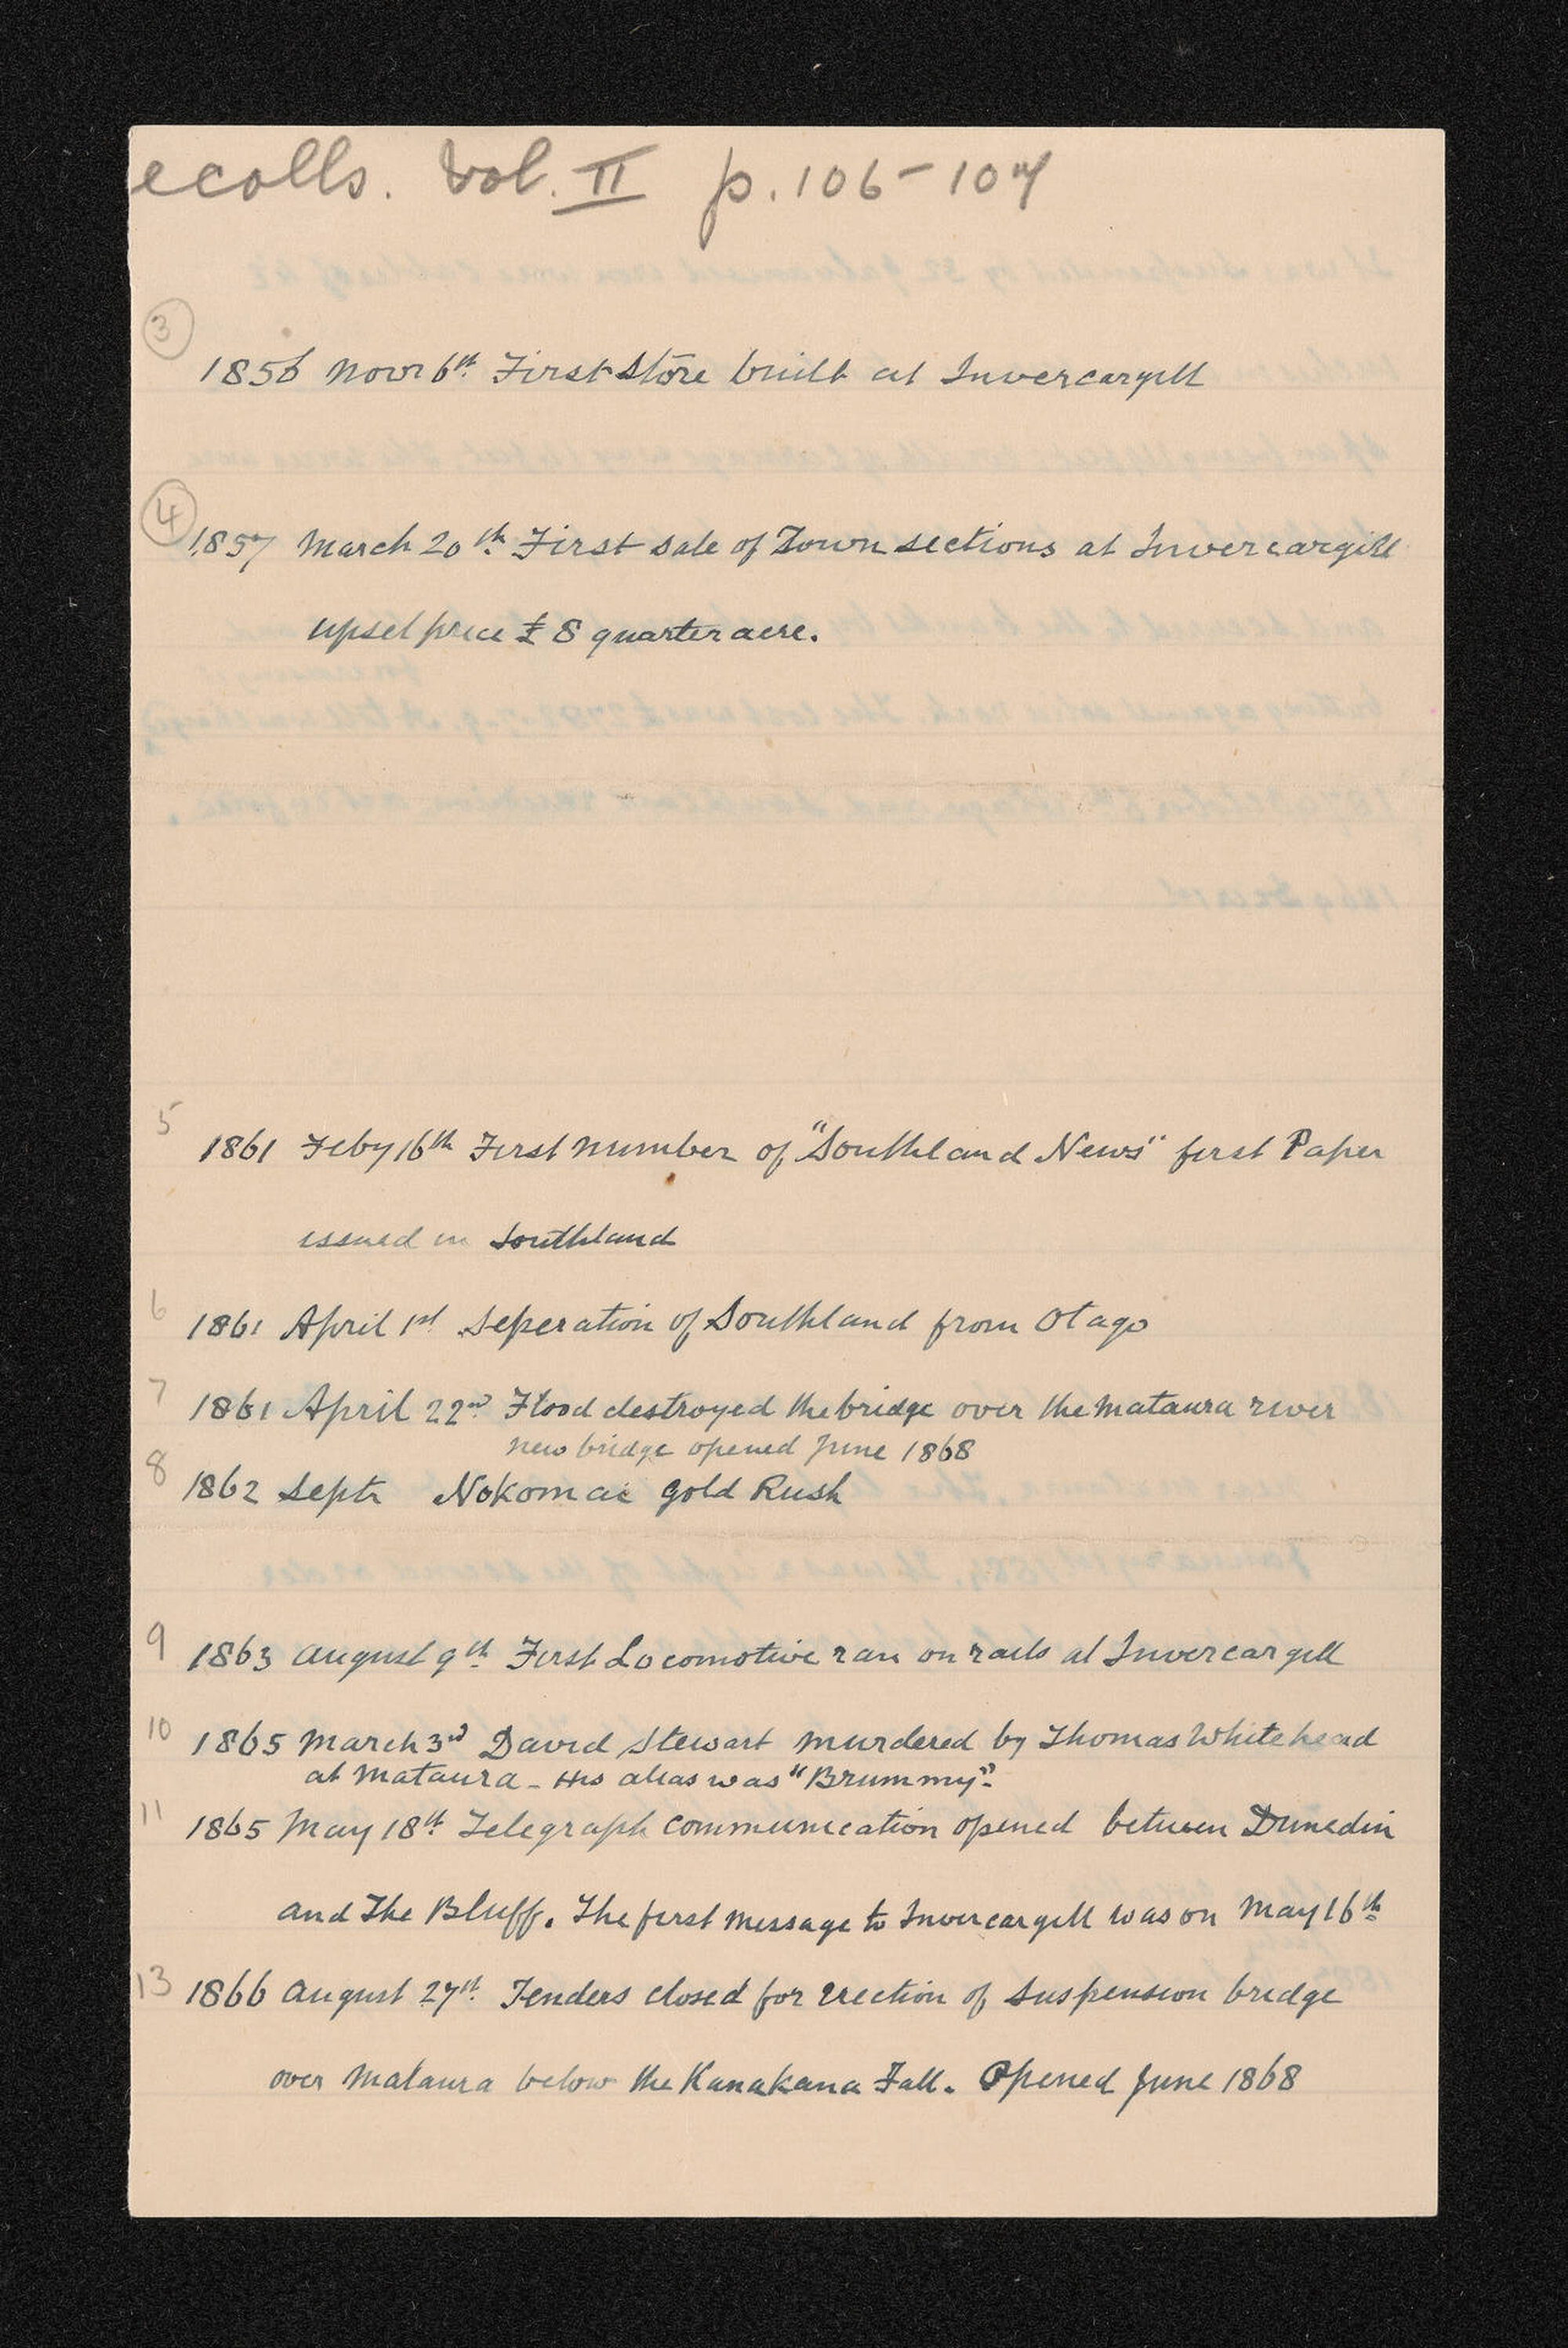 ecolls. Vol. II p. 106-107
3
1856 Novr 6th First Store built at Invercargill
4
1857 March 20th First sale of Town sections at Invercargill
upset price £8 quarter acre.
5
1861 Feby 16th First number of "Southland News" first Paper
issued in Southland
6
1861 April 1st Seperation of Southland from Otago
7
1861 April 22nd Flood destroyed the bridge over the Mataura river
new bridge opened June 1868
8
1862 Septr Nokomai Gold Rush
9
1863 August 9th First Locomotive ran on rails at Invercargill
10
1865 March 3rd David Stewart murdered by Thomas Whitehead
at Mataura - His alias was "Brummy".
11
1865 May 18th Telegraph communication opened between Dunedin
and The Bluff. The first message to Invercargill was on May 16th
13
1866 August 27th Tenders closed for erection of Suspension bridge
over Mataura below the Kanakana Fall. Opened June 1868